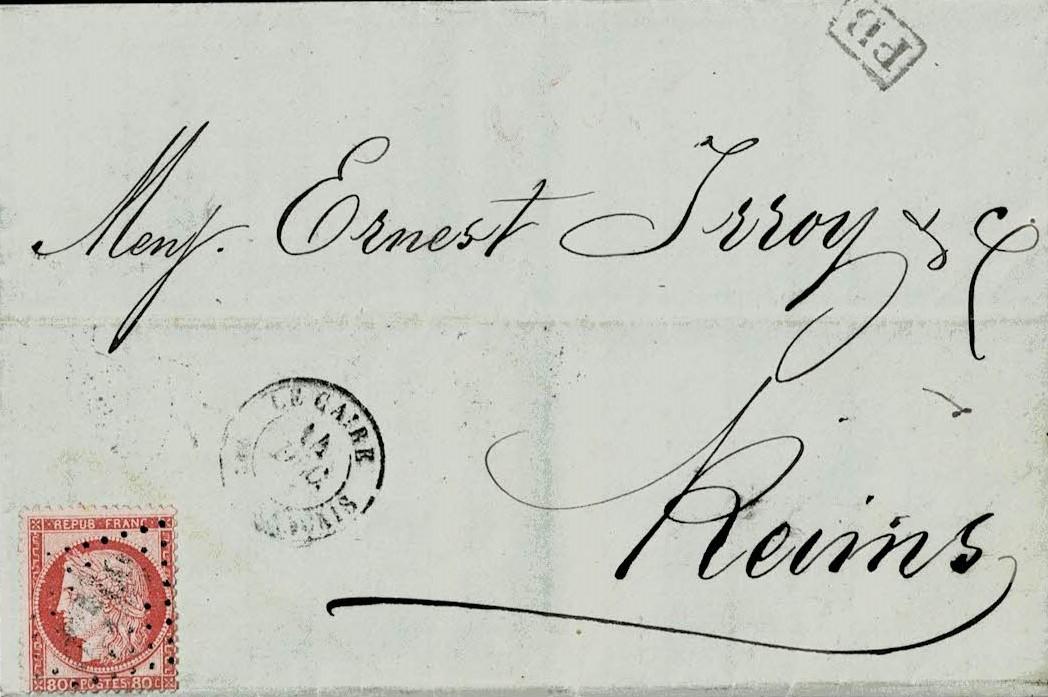 PD
Mess. Ernest Irroy & C
Reims
LE CAIRE
14
REPUB. FRANC
80C POSTES 80C